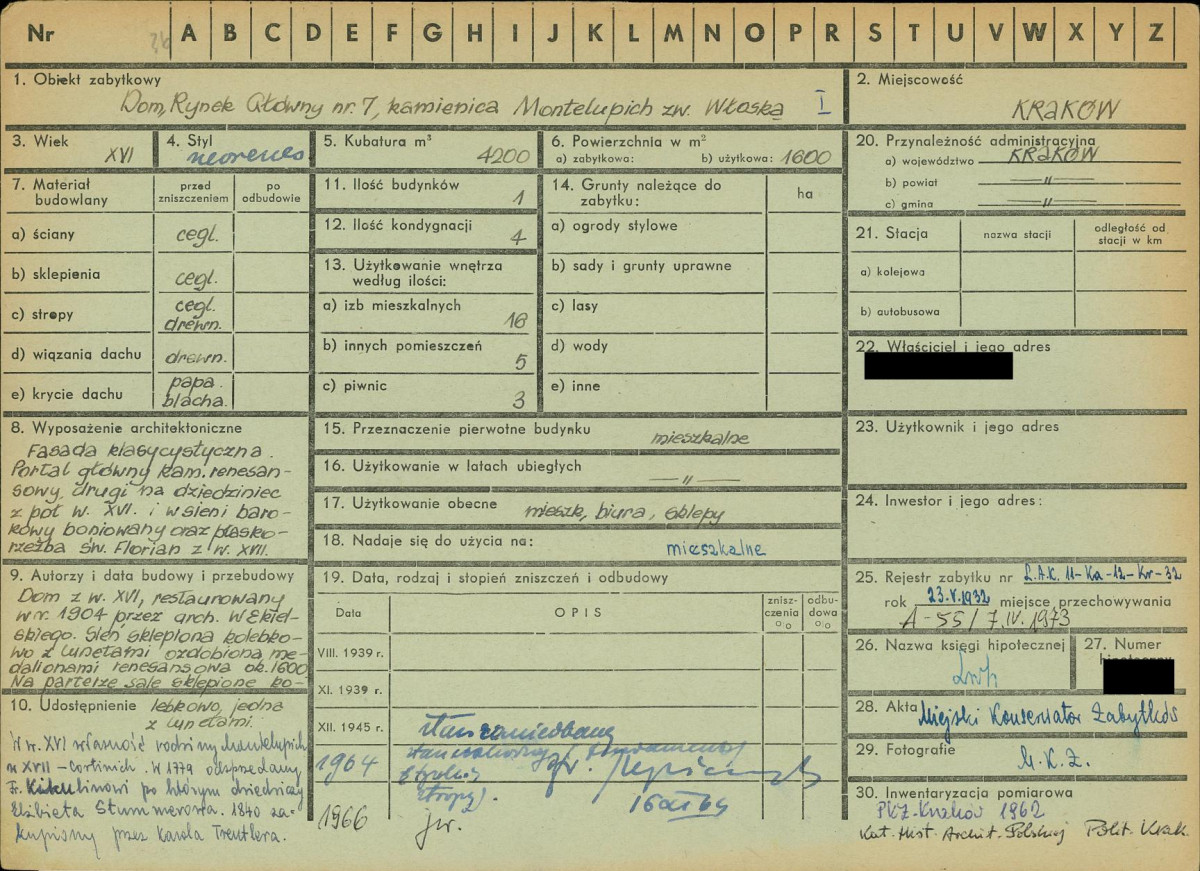 Nr A B C D E F G H I J K L M N O P R S T U V W X Y Z
1. Obiekt zabytkowy
Dom, Rynek Główny nr. 7, kamienica Montelupich zw. Włoską I
2. Miejscowość
KRAKÓW
3. Wiek
XVI
4. Styl
neorenes
5. Kubatura m³
4200
6. Powierzchnia w m²
a) zabytkowa: b) użytkowa: 1600
7. Materiał budowlany
przed zniszczeniem
po odbudowie
a) ściany cegl.
b) sklepienia cegl.
c) stropy cegl. drewn.
d) wiązania dachu drewn.
e) krycie dachu papa. blacha.
8. Wyposażenie architektoniczne
Fasada klasycystyczna.
Portal główny kam. renesan-
sowy, drugi na dziedziniec
z poł w. XVI. i w sieni baro-
kowy boniowany oraz płasko-
rzeźba św. Florian z w. XVII.
9. Autorzy i data budowy i przebudowy
Dom z w. XVI, restaurowany
w r. 1904 przez arch. W Ekiel-
skiego. Sień sklepiona kolebko-
wo z lunetami ozdobiona me-
dalionami renesansowa ok. 1600
Na parterze sale sklepione ko-
10. Udostępnienie lebkowo, jedna
z lunetami.
W w. XVI własność rodziny Montelupich
w XVII - Cortinich. W 1779 odsprzedany
Fr. Kikulinowi po którym dziedziczy
Elżbieta Stummerowa. 1840 za-
kupiony przez Karola Treutlera.
11. Ilość budynków 1
12. Ilość kondygnacji 4
13. Użytkowanie wnętrza
według ilości:
a) izb mieszkalnych 16
b) innych pomieszczeń 5
c) piwnic 3
14. Grunty należące do
zabytku:
ha
a) ogrody stylowe
b) sady i grunty uprawne
c) lasy
d) wody
e) inne
15. Przeznaczenie pierwotne budynku mieszkalne
16. Użytkowanie w latach ubiegłych —"—
17. Użytkowanie obecne mieszk., biura, sklepy
18. Nadaje się do użycia na: mieszkalne
19. Data, rodzaj i stopień zniszczeń i odbudowy
Data OPIS znisz-czenia % odbu-dowa %
VIII. 1939 r.
XI. 1939 r.
XII. 1945 r. stan zaniedbany
1964
stropy).
16 XI 64
1966 jw.
20. Przynależność administracyjna
a) województwo KRAKÓW
b) powiat —"—
c) gmina —"—
21. Stacja
nazwa stacji
odległość od stacji w km
a) kolejowa
b) autobusowa
22. Właściciel i jego adres
23. Użytkownik i jego adres
24. Inwestor i jego adres:
25. Rejestr zabytku nr L.A.K. 11-Ka-12-Kr-32
rok 23.V.1932 miejsce przechowywania
A-55/7.IV.1973
26. Nazwa księgi hipotecznej
Lwh
27. Numer
28. Akta Miejski Konserwator Zabytków
29. Fotografie
M.K.Z.
30. Inwentaryzacja pomiarowa
PKZ-Kraków 1962
Kat. Hist. Archit. Polskiej Polit. Krak.